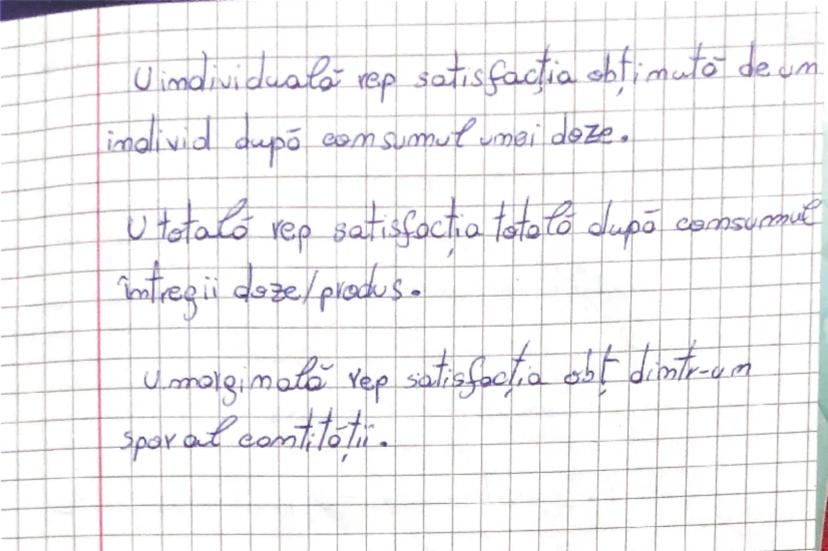 U individuală rep satisfacția obținută de un
individ după consumul unei doze.
U totală rep satisfacția totală după consumul
întregii doze/produs.
U marginală rep satisfacția obț dintr-un
spor al cantității.